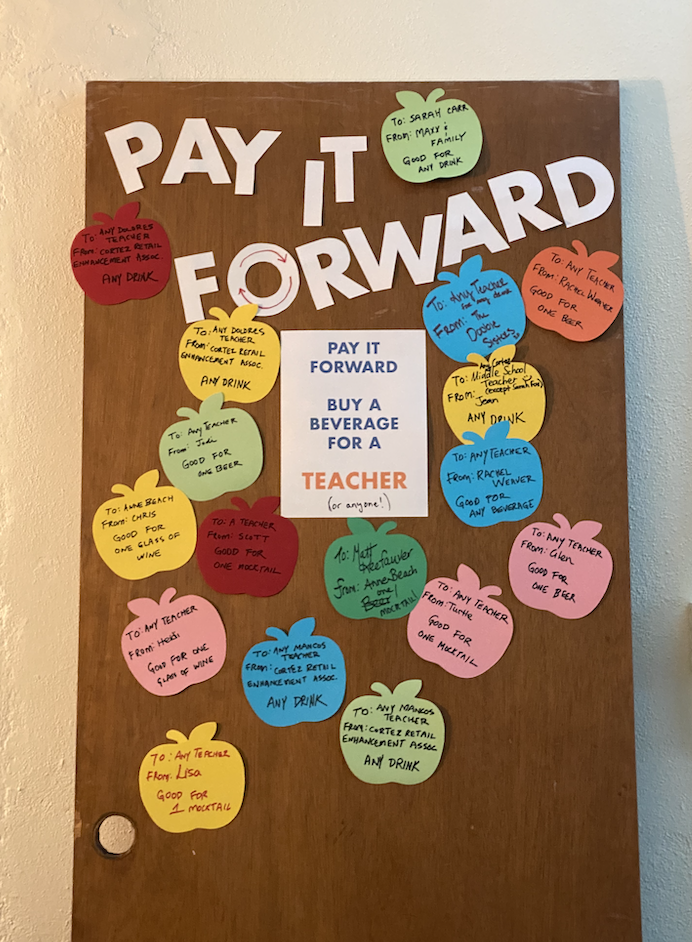 PAY IT
FORWARD
TO: SARAH CARR
FROM: MAXX &
FAMILY
GOOD FOR
ANY DRINK
TO: ANY DOLORES
TEACHER
FROM: CORTEZ RETAIL
ENHANCEMENT ASSOC.
ANY DRINK
TO: ANY TEACHER
FROM: RACHEL WEAVER
GOOD FOR
ONE BEER
To: Any Teacher
From: The
Doobie
Sisters
TO: ANY DOLORES
TEACHER
FROM: CORTEZ RETAIL
ENHANCEMENT ASSOC.
ANY DRINK
PAY IT
FORWARD
BUY A
BEVERAGE
FOR A
TEACHER
(or anyone!)
Any Cortez
TO: Middle School
Teacher
FROM: (except Sarah Fox)
Jenn
ANY DRINK
TO: ANY TEACHER
From: Jodi
GOOD FOR
ONE BEER
TO: ANY TEACHER
FROM: RACHEL
WEAVER
GOOD FOR
ANY BEVERAGE
TO: ANNE BEACH
FROM: CHRIS
GOOD FOR
ONE GLASS OF
WINE
TO: A TEACHER
FROM: SCOTT
GOOD FOR
ONE MOCKTAIL
To: Matt
From: Anne Beach
one
Beer!
MOCKTAIL!
TO: ANY TEACHER
FROM: Glen
GOOD FOR
ONE BEER
TO: ANY TEACHER
FROM: Turtle
GOOD FOR
ONE MOCKTAIL
TO: ANY TEACHER
FROM: Heidi
GOOD FOR ONE
GLASS OF WINE
TO: ANY MANCOS
TEACHER
FROM: CORTEZ RETAIL
ENHANCEMENT ASSOC.
ANY DRINK
TO: ANY MANCOS
TEACHER
FROM: CORTEZ RETAIL
ENHANCEMENT ASSOC
ANY DRINK
TO: ANY TEACHER
FROM: Lisa
GOOD FOR
1 MOCKTAIL